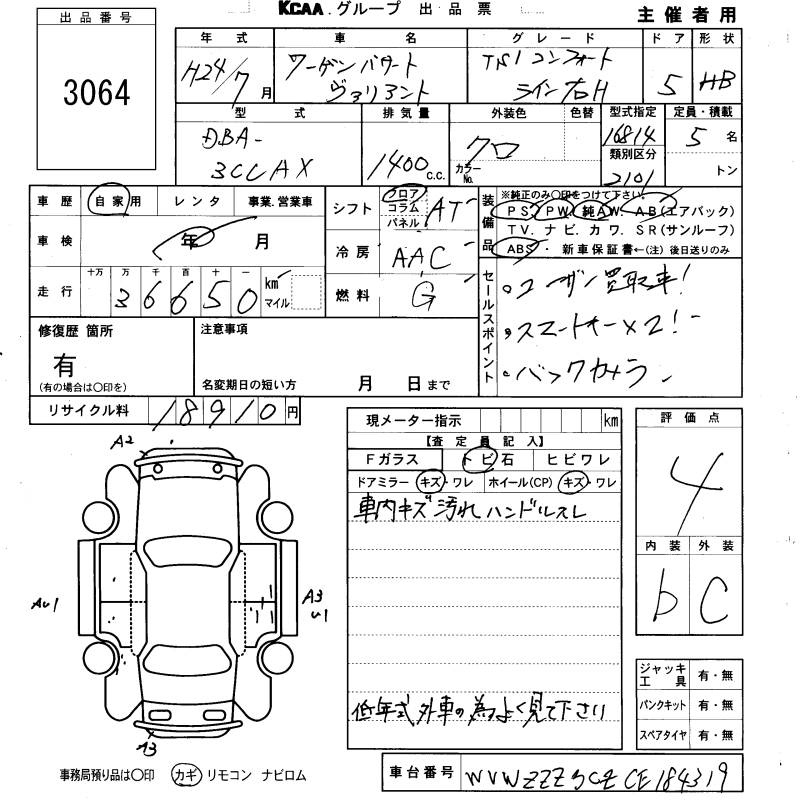 KCAA.グループ 出品票
主催者用
出品番号
3064
年式 車名 グレード ドア 形状
H24/7月 ワーゲン パサート ヴァリアント TSI コンフォート ライン 右H 5 HB
型式 排気量 外装色 色替 型式指定 定員・積載
DBA- 3CCAX 1400 C.C. クロ カラーNo. 16814 類別区分 2101 5名 トン
車歴 自家用 レンタ 事業.営業車
シフト フロア コラム パネル AT
装備品 ※純正のみ〇印をつけて下さい。
PS. PW. 純AW. AB(エアバック)
TV. ナビ. カワ. SR(サンルーフ)
ABS・ 新車保証書←(注)後日送りのみ
車検 年 月
冷房 AAC
走行 十万 万 千 百 十 一 km マイル
36650
燃料 G
セールスポイント
・ユーザー買取車!
・スマートキー×2!
・バックカメラ
修復歴 箇所
有
(有の場合は〇印を)
注意事項
名変期日の短い方 月 日まで
リサイクル料 18910円
現メーター指示 km
【査定員記入】
Fガラス トビ石 ヒビワレ
ドアミラー キズ・ワレ ホイール(CP) キズ・ワレ
車内キズ 汚れ ハンドルスレ
低年式 外車の為よく見て下さい
評価点
4
内装 外装
b C
A2
AU1
A3
U1
A3
ジャッキ工具 有・無
パンクキット 有・無
スペアタイヤ 有・無
事務局預り品は〇印 カギ リモコン ナビロム
車台番号 WVWZZZ3CZCE184319